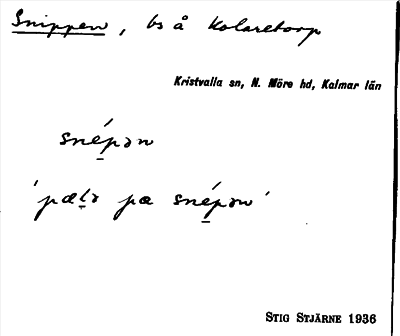 Snippen, bs å Kolaretorp
Kristvalla sn, N. Möre hd, Kalmar län
snépən
'pætə pæ snépən'
STIG STJÄRNE 1936